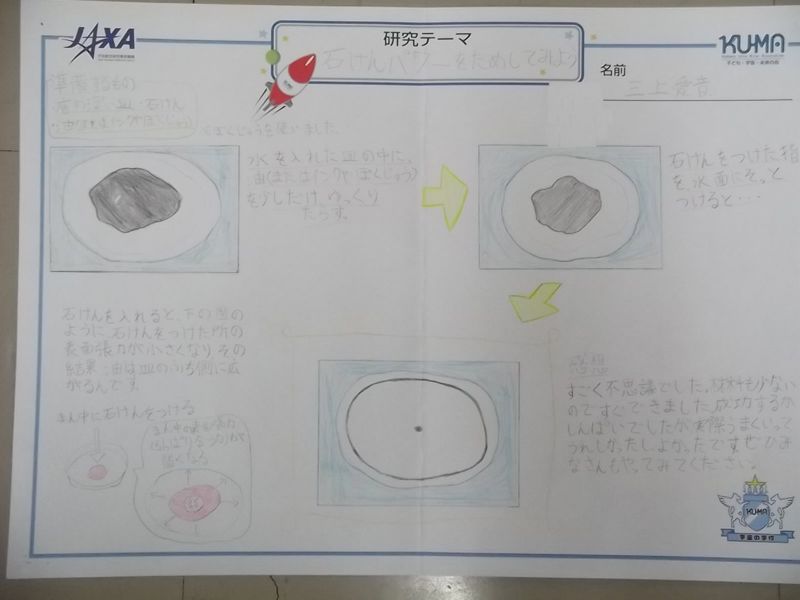 JAXA
研究テーマ
石けんパワーをためしてみよう
KU-MA
子ども・宇宙・未来の会
名前
三上愛音
準備するもの
底の深い皿・石けん
ぼくじゅうを使いました。
水を入れた皿の中に、
油(またはインクやぼくじゅう)
を少しだけ、ゆっくり
たらす。
石けんをつけた指
を水面にそっと
つけると・・・
石けんを入れると、下の図の
ように石けんをつけた所の
表面張力が小さくなりその
結果、油は皿のふち側に広
がるんです。
まん中に石けんをつける
まん中の表面張力
(ひっぱりあう力)が
弱くなる
感想
すごく不思議でした。材料も少ない
のですぐできました。成功するか
しんぱいでしたが実際うまくいって
うれしかったしよかったですぜひみ
なさんもやってみてください。
KUMA
宇宙の学校